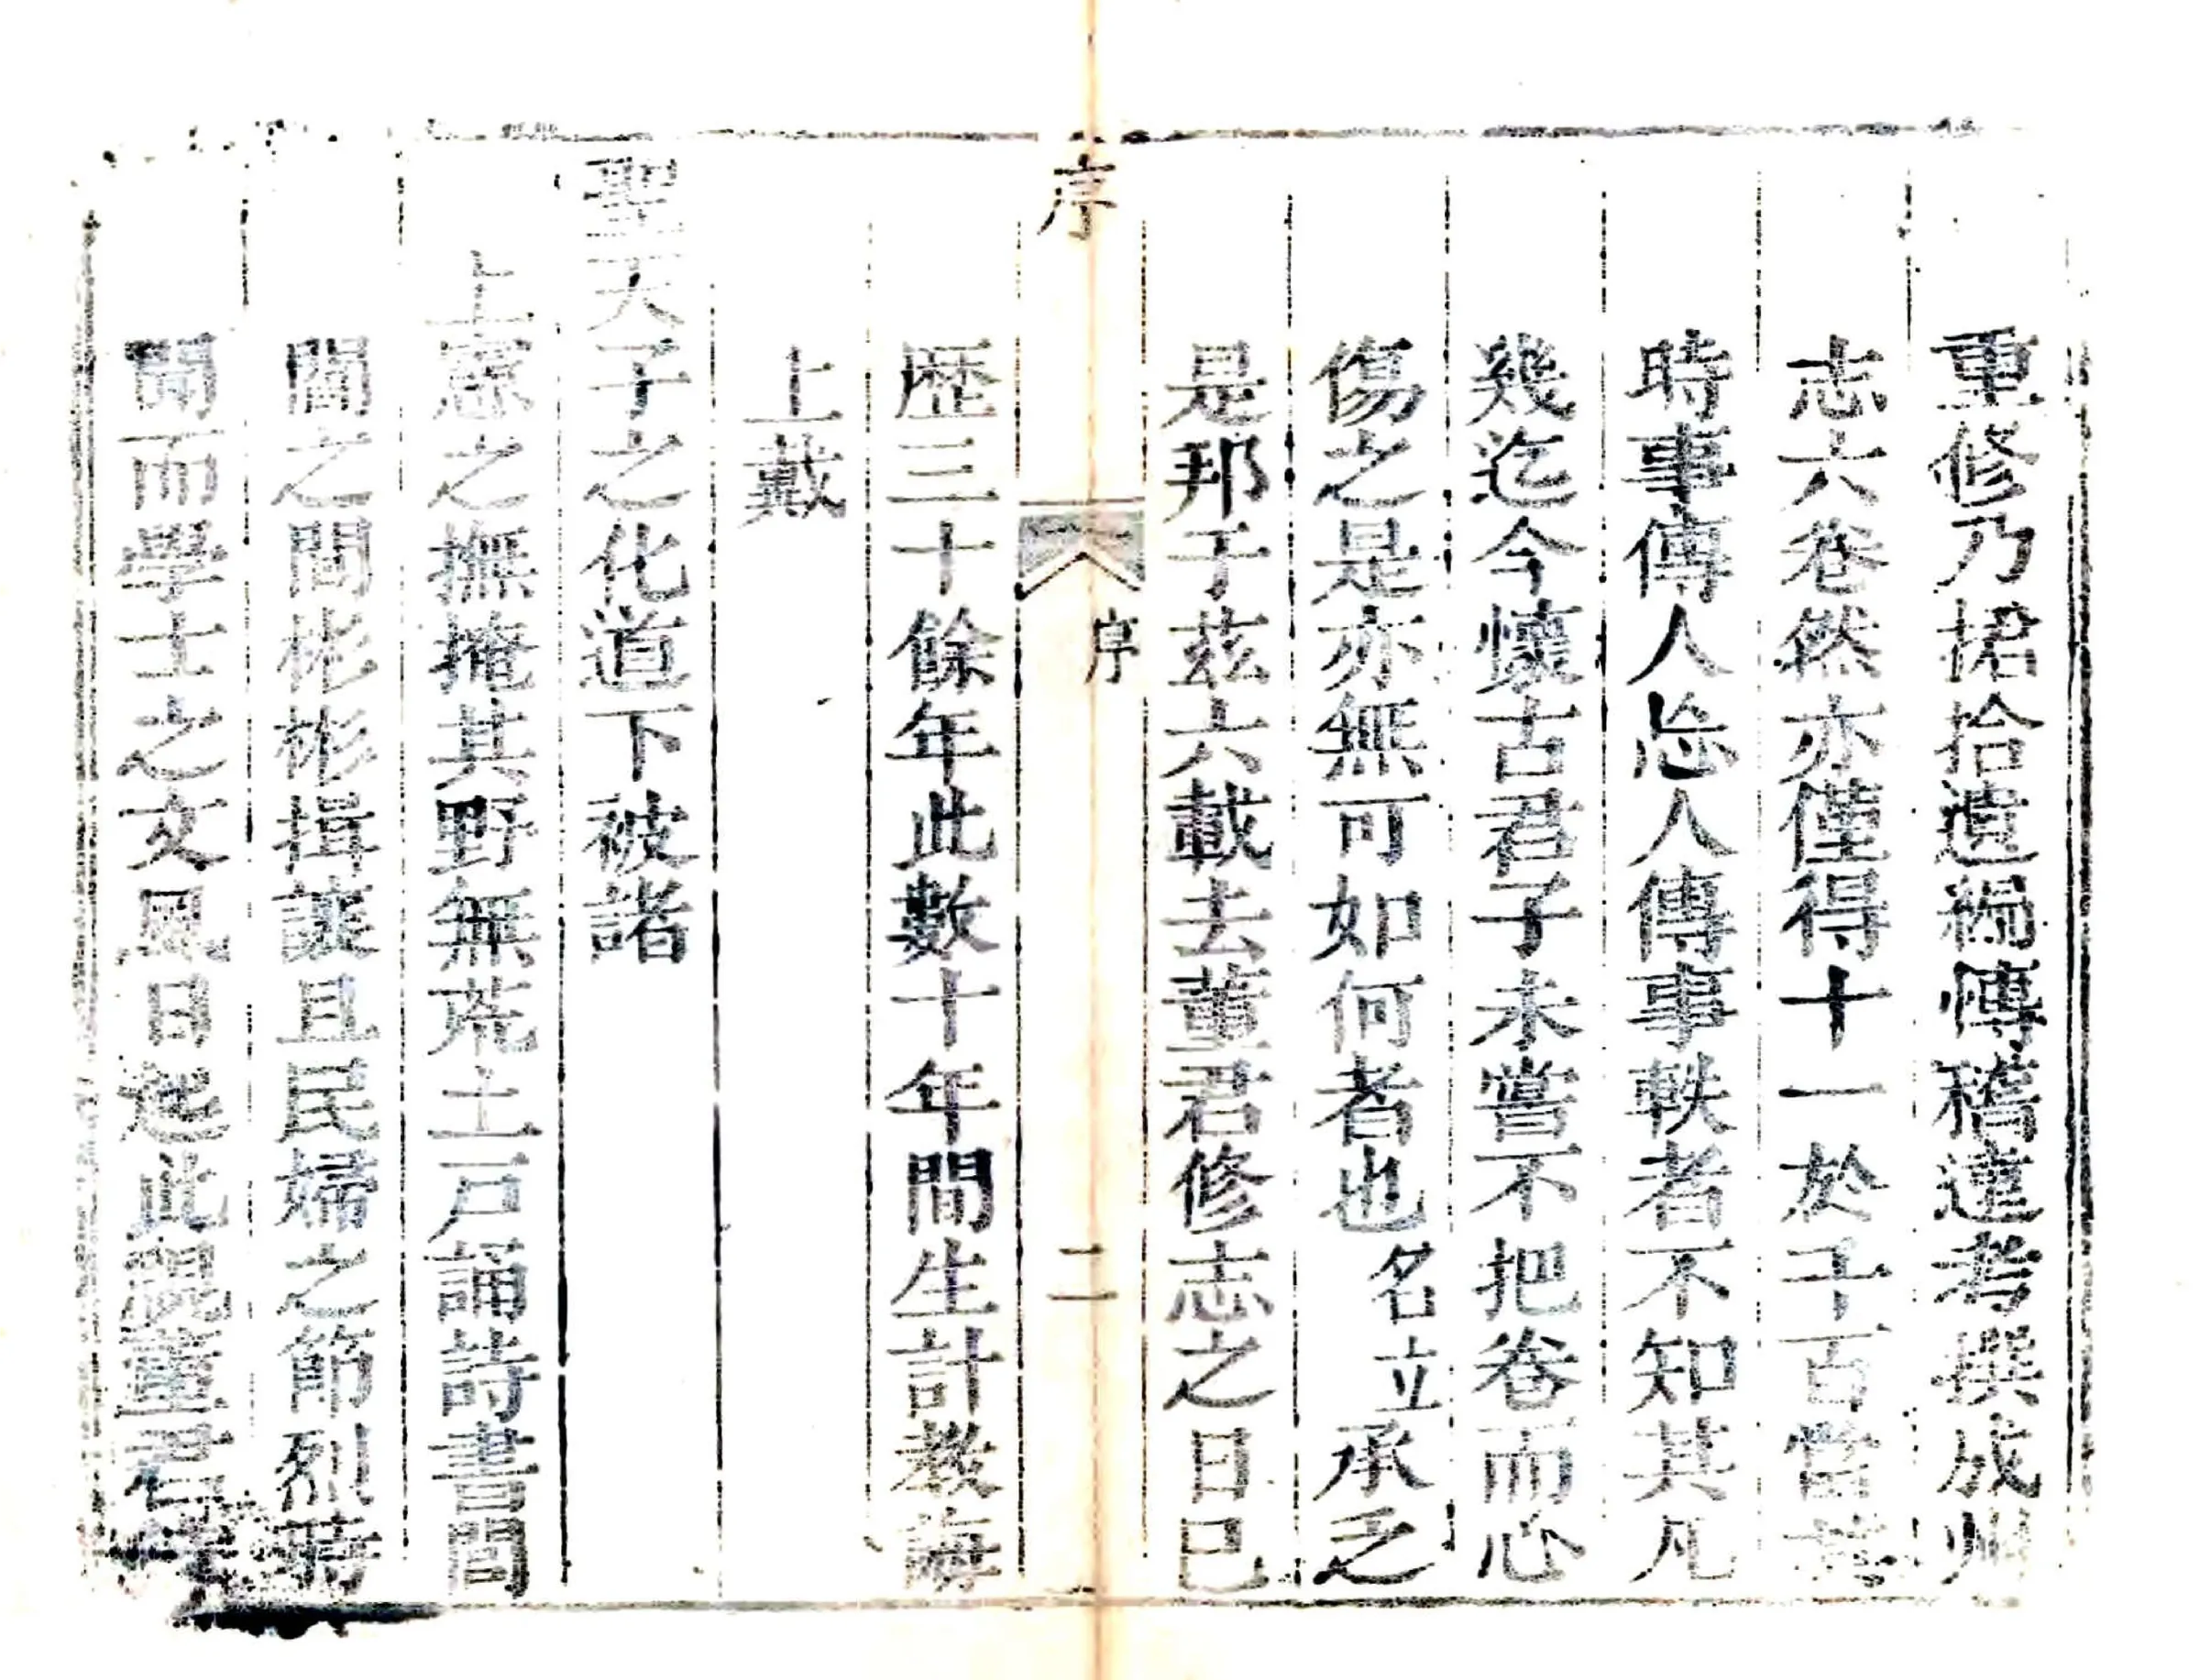 重修乃捃拾遺編博稽達考撰成州
志六卷然亦僅得十一於千百當其
時事傳人怂人傳事軼者不知其凡
幾迄今懷古君子未嘗不把卷而心
傷之是亦無可如何者也名立承乏
是邦于兹六載去董君修志之日已
序
序
二
歴三十餘年此數十年間生計教誨
上戴
聖天子之化道下被諸
上憲之撫掩其野無荒土戸誦詩書間
閻之間彬彬揖讓且民婦之節烈時
聞而學士之文風日起此視董君